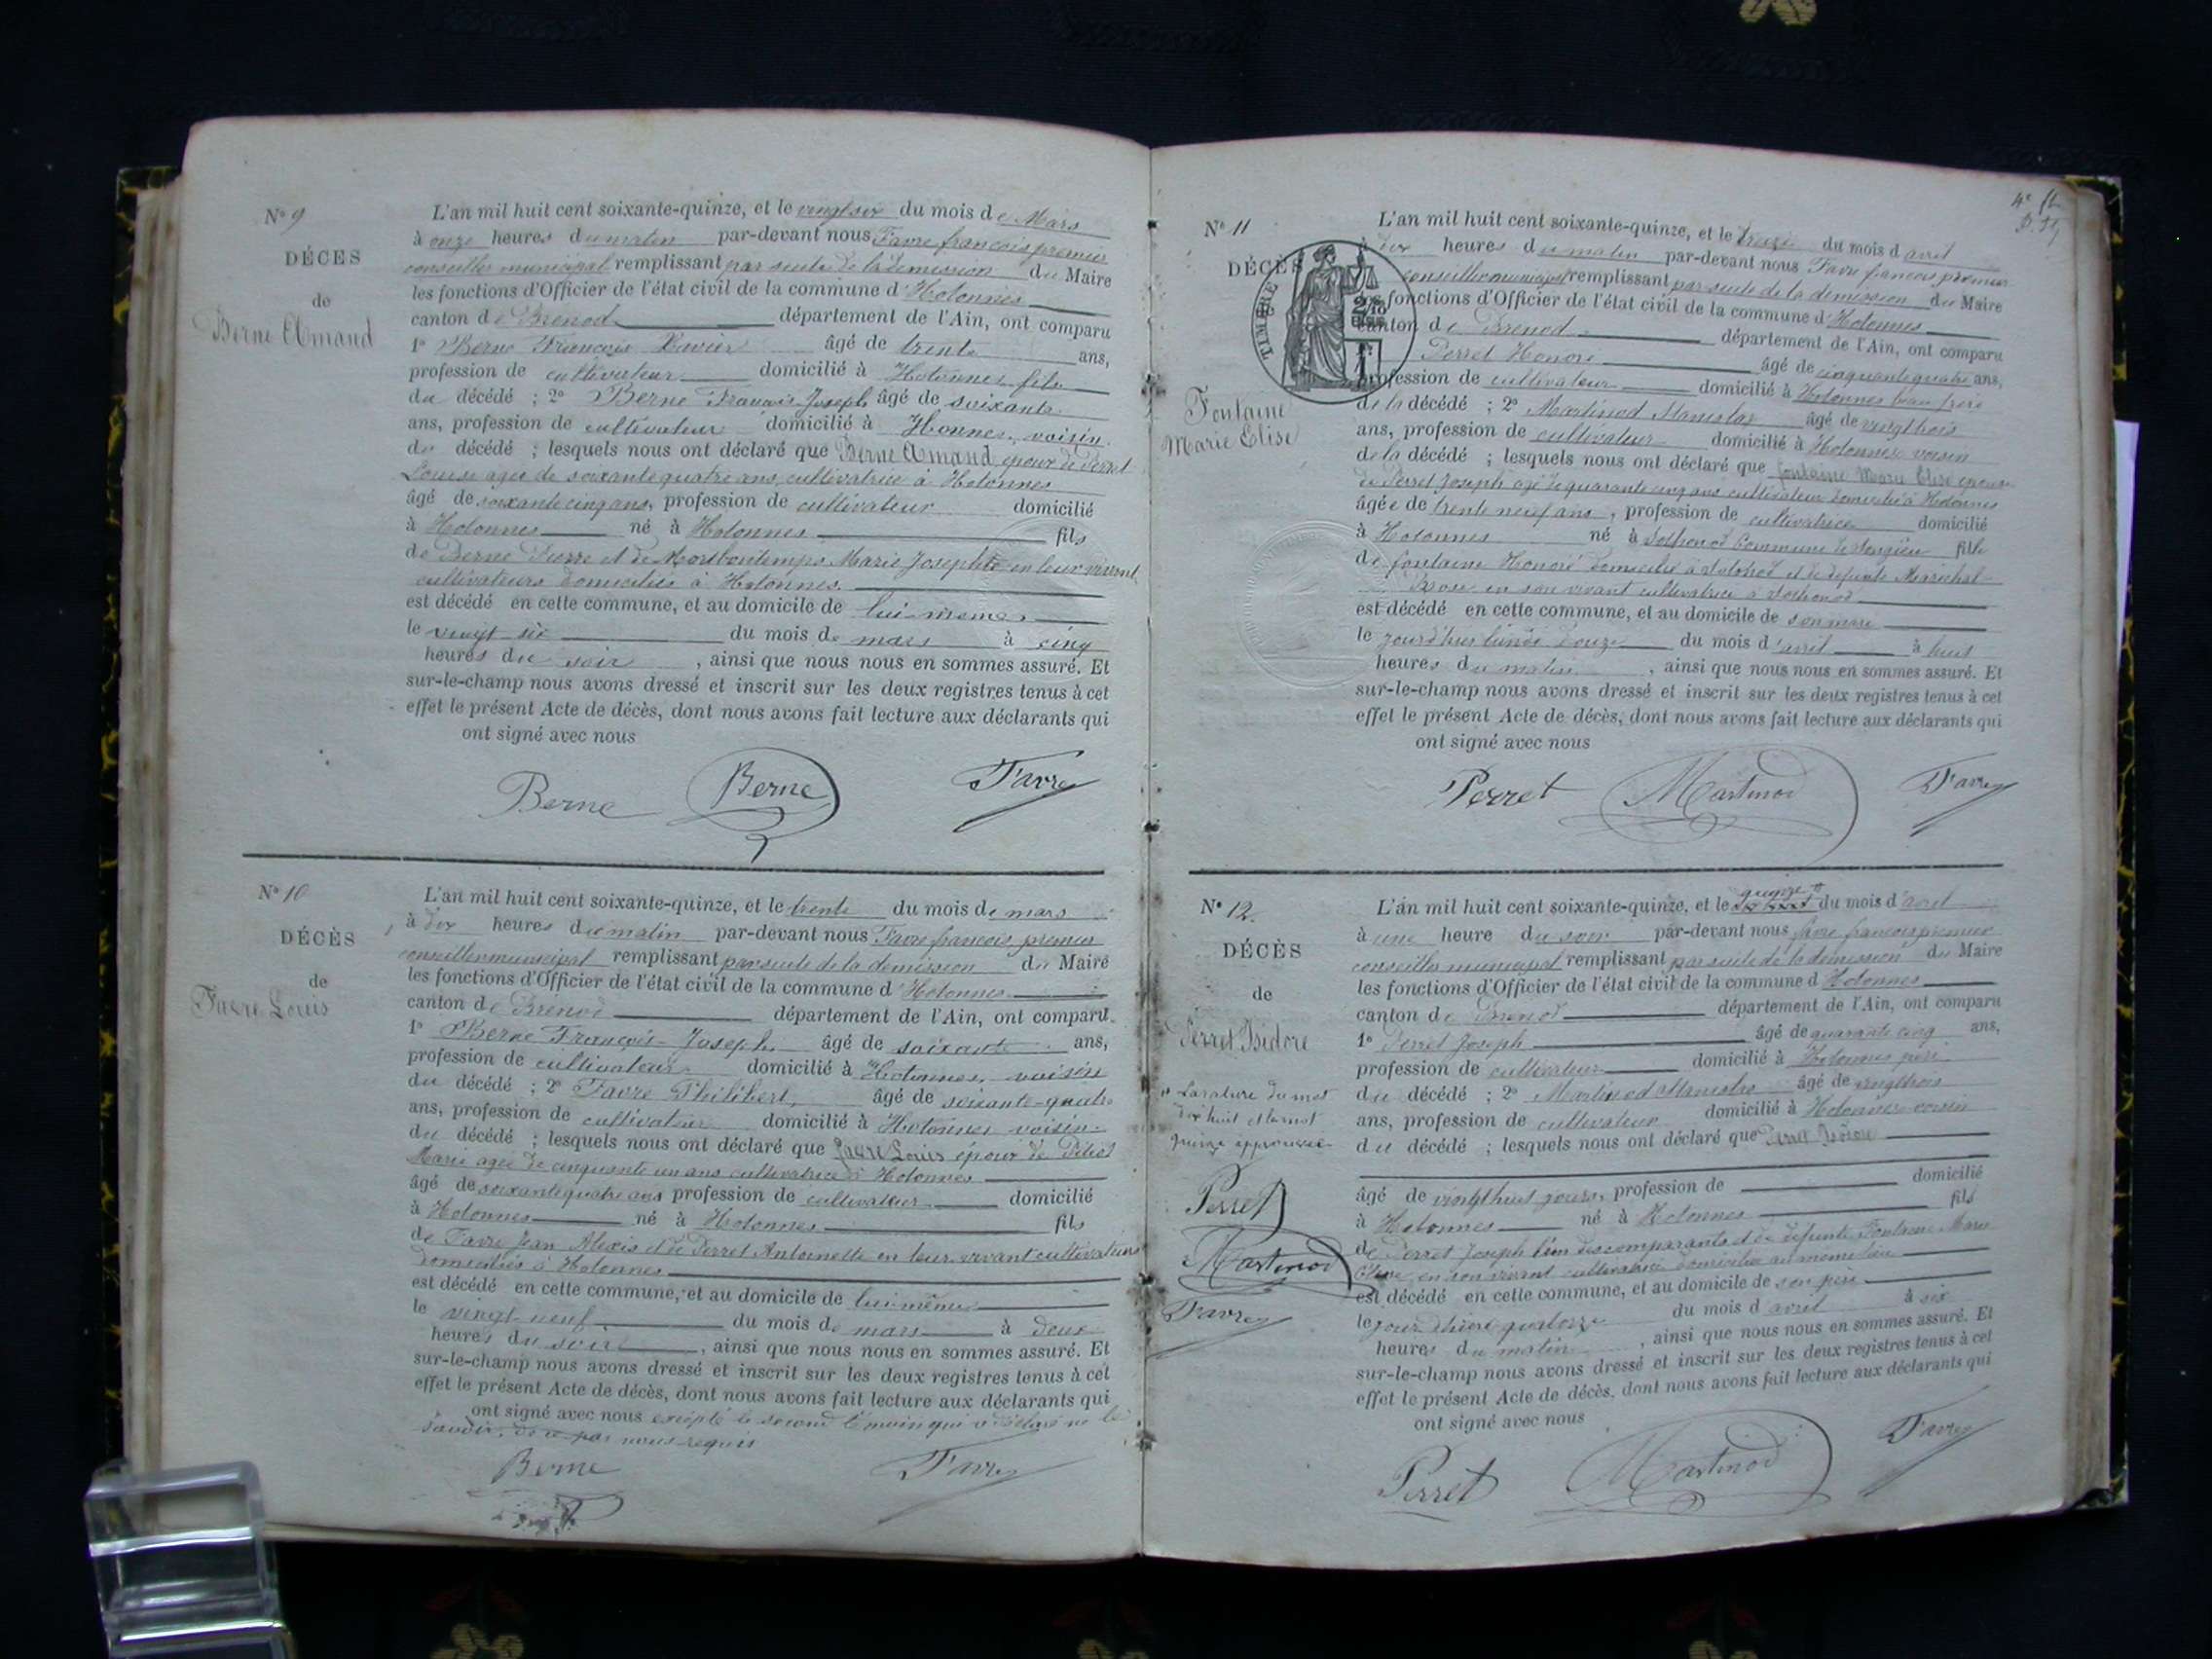 N° 9
DÉCES
de
Berne Amand
L'an mil huit cent soixante-quinze, et le vingt six du mois de Mars
à onze heures du matin par-devant nous Favre francois premier
conseiller municipal remplissant par suite de la demission du Maire
les fonctions d'Officier de l'état civil de la commune d'Hotonnes
canton de Brenod département de l'Ain, ont comparu
1° Berne François Xavier âgé de trente ans,
profession de cultivateur domicilié à Hotonnes fils
du décédé ; 2° Berne François Joseph âgé de soixante
ans, profession de cultivateur domicilié à Honnes, voisin
du décédé ; lesquels nous ont déclaré que Berne Amand époux de Perret
Louise agée de soixante quatre ans, cultivatrice à Hotonnes
âgé de soixante cinq ans, profession de cultivateur domicilié
à Hotonnes né à Hotonnes fils
de Berne Pierre et de Marie Josephte en leur vivant
cultivateurs domiciliés à Hotonnes
est décédé en cette commune, et au domicile de lui-meme
le vingt six du mois de mars à cinq
heures du soir , ainsi que nous nous en sommes assuré. Et
sur-le-champ nous avons dressé et inscrit sur les deux registres tenus à cet
effet le présent Acte de décès, dont nous avons fait lecture aux déclarants qui
ont signé avec nous
Berne Berne Favre
N° 10
DÉCÈS
de
Favre Louis
L'an mil huit cent soixante-quinze, et le trente du mois de mars
à dix heures du matin par-devant nous Favre francois premier
conseiller municipal remplissant par suite de la demission du Maire
les fonctions d'Officier de l'état civil de la commune d'Hotonnes
canton de Brénod département de l'Ain, ont comparu
1° Berne François-Joseph âgé de soixante ans,
profession de cultivateur domicilié à Hotonnes, voisin
du décédé ; 2° Favre Philibert, âgé de soixante-quatre
ans, profession de cultivateur domicilié à Hotonnes voisin
du décédé ; lesquels nous ont déclaré que Favre Louis époux de
Marie agée de cinquante un ans cultivatrice à Hotonnes
âgé de soixante quatre ans profession de cultivateur domicilié
à Hotonnes né à Hotonnes fils
de Favre Jean Alexis et de Perret Antoinette en leur vivant cultivateurs
domiciliés à Hotonnes
est décédé en cette commune, et au domicile de lui-même
le vingt-neuf du mois de mars à deux
heures du soir , ainsi que nous nous en sommes assuré. Et
sur-le-champ nous avons dressé et inscrit sur les deux registres tenus à cet
effet le présent Acte de décès, dont nous avons fait lecture aux déclarants qui
ont signé avec nous excepté le second témoin qui a déclaré ne le
savoir, de ce par nous requis
Berne Favre
4e
N° 11
DÉCÈS
TIMBRE
2/10
Fontaine
Marie Elise
L'an mil huit cent soixante-quinze, et le treize du mois d'avril
à dix heures du matin par-devant nous Favre francois premier
conseiller municipal remplissant par suite de la demission du Maire
les fonctions d'Officier de l'état civil de la commune d'Hotonnes
canton de Brenod département de l'Ain, ont comparu
1° Perret Honoré âgé de cinquante quatre ans,
profession de cultivateur domicilié à Hotonnes beau frere
de la décédé ; 2° Martinod Stanislas âgé de vingt trois
ans, profession de cultivateur domicilié à Hotonnes voisin
de la décédé ; lesquels nous ont déclaré que fontaine Marie Elise epouse
de Perret Joseph agé de quarante cinq ans cultivateur domicilié à Hotonnes
âgée de trente neuf ans , profession de cultivatrice domicilié
à Hotonnes né à Sothonod Commune de Songieu fille
de fontaine Honoré domicilié à Sothonod et de defunte Marechal
Rose en son vivant cultivatrice à Sothonod
est décédé en cette commune, et au domicile de son mari
le jourd'hui lundi douze du mois d'avril à huit
heures du matin , ainsi que nous nous en sommes assuré. Et
sur-le-champ nous avons dressé et inscrit sur les deux registres tenus à cet
effet le présent Acte de décès, dont nous avons fait lecture aux déclarants qui
ont signé avec nous
Perret Martinod Favre
N° 12
DÉCÈS
de
Perret Isidore
La rature du mot
dix huit et le mot
quinze approuvée
Perret
Martinod
Favre
quinze
L'an mil huit cent soixante-quinze, et le du mois d'avril
à une heure du soir par-devant nous favre francois premier
conseiller municipal remplissant par suite de la démission du Maire
les fonctions d'Officier de l'état civil de la commune d Hotonnes
canton de Brenod département de l'Ain, ont comparu
1° Perret Joseph âgé de quarante cinq ans,
profession de cultivateur domicilié à Hotonnes père
du décédé ; 2° Martinod Stanislas âgé de vingt trois
ans, profession de cultivateur domicilié à Hotonnes voisin
du décédé ; lesquels nous ont déclaré que Perret Isidore
âgé de vingt huit jours, profession de domicilié
à Hotonnes né à Hotonnes fils
de Perret Joseph l'un des comparants et de défunte Fontaine Marie
Elise, en son vivant cultivatrice domiciliée au même lieu
est décédé en cette commune, et au domicile de son père
le jour d'hier quatorze du mois d avril à six
heures du matin , ainsi que nous nous en sommes assuré. Et
sur-le-champ nous avons dressé et inscrit sur les deux registres tenus à cet
effet le présent Acte de décès, dont nous avons fait lecture aux déclarants qui
ont signé avec nous
Perret Martinod Favre